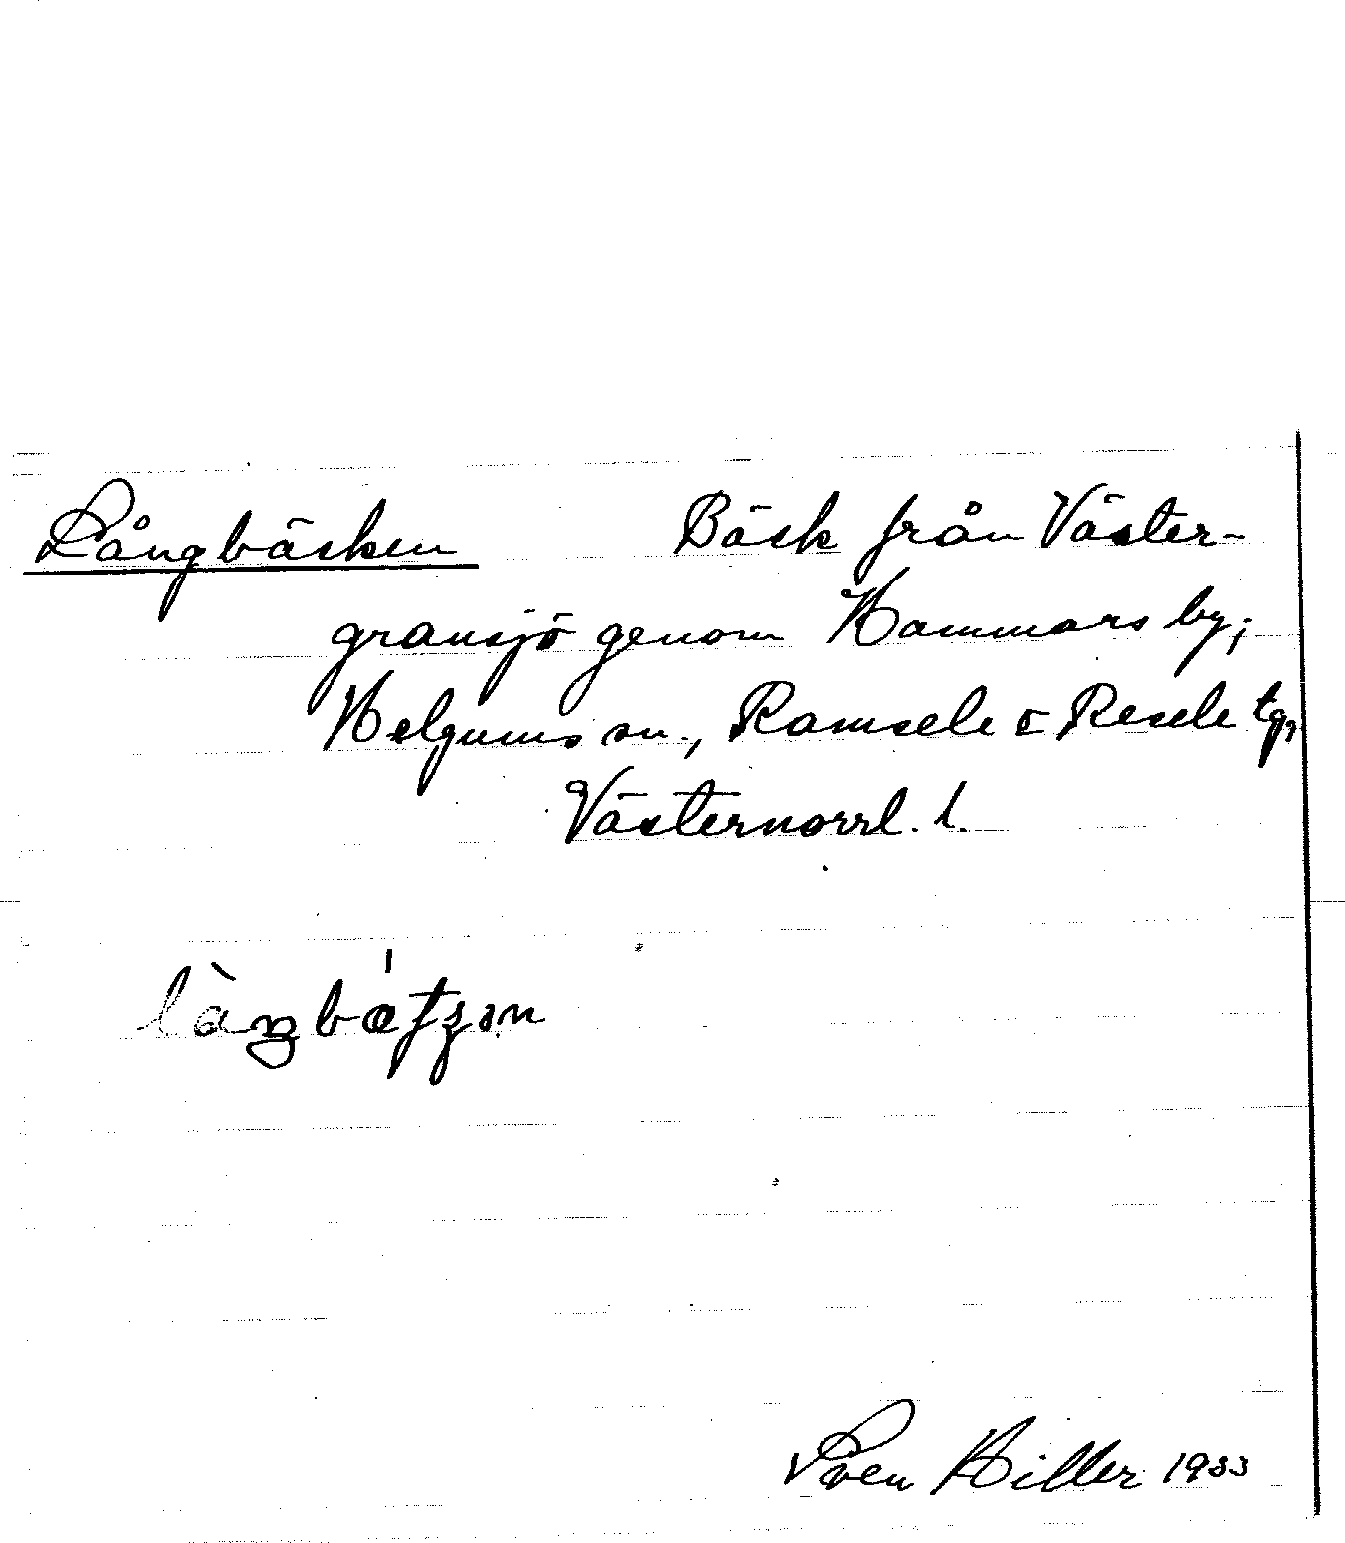 Långbäcken Bäck från Väster-
gransjö genom Hammars by;
Helgums sn., Ramsele & Resele tg,
Västernorrl. l.
Sven Hiller 1933